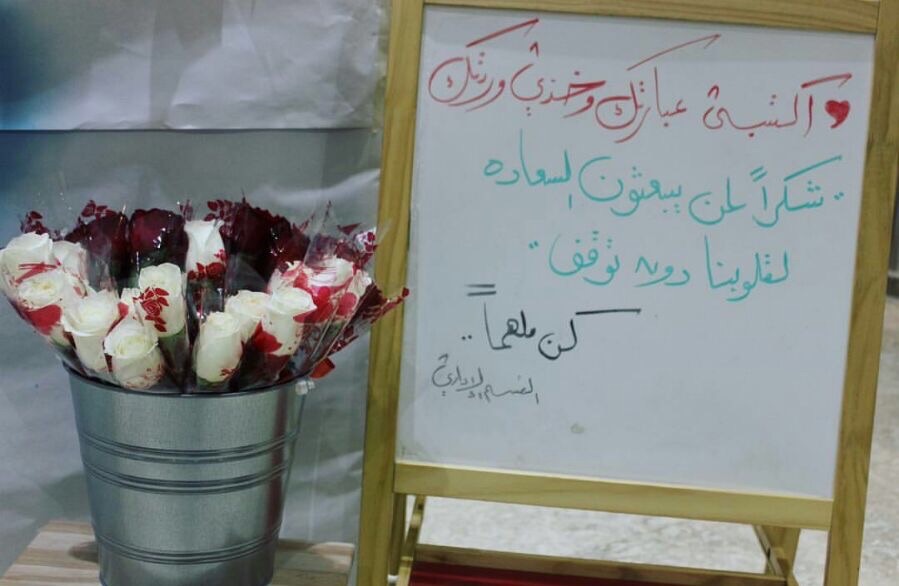 اكتبي عبارتك وخذي وردتك
شكراً لمن يبعثون السعاده
لقلوبنا دون توقف
كن ملهماً..
القسم الإداري